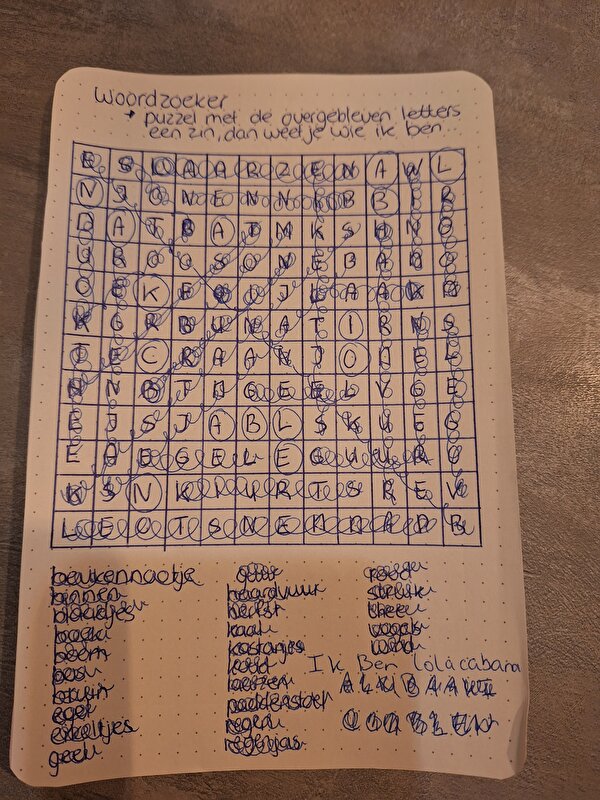 Woordzoeker
* puzzel met de overgebleven letters
een zin, dan weet je wie ik ben...
E S L A A R Z E N A W L
N J O N E N N B B I R
D A T B A T M K S U N O
U B O O S O N E B A O O
O E K E O J L A A K B
K G R B U N A T I R N S
I E C R A A N J O J E L
H N B T D G E E L V G E
E J S J A B L S K U E G
E D E G E L E G U U R U
K S N K R U R T S R E V
L E O T S N E D D A P B
beukennootje
binnen
blaadjes
boek
boom
bos
bruin
egel
eikeltjes
geel
geur
haardvuur
herfst
kaal
kastanjes
rood
laarzen
paddenstoel
regen
regenjas
struik
thee
vogels
wind
Ik Ben lolacabana